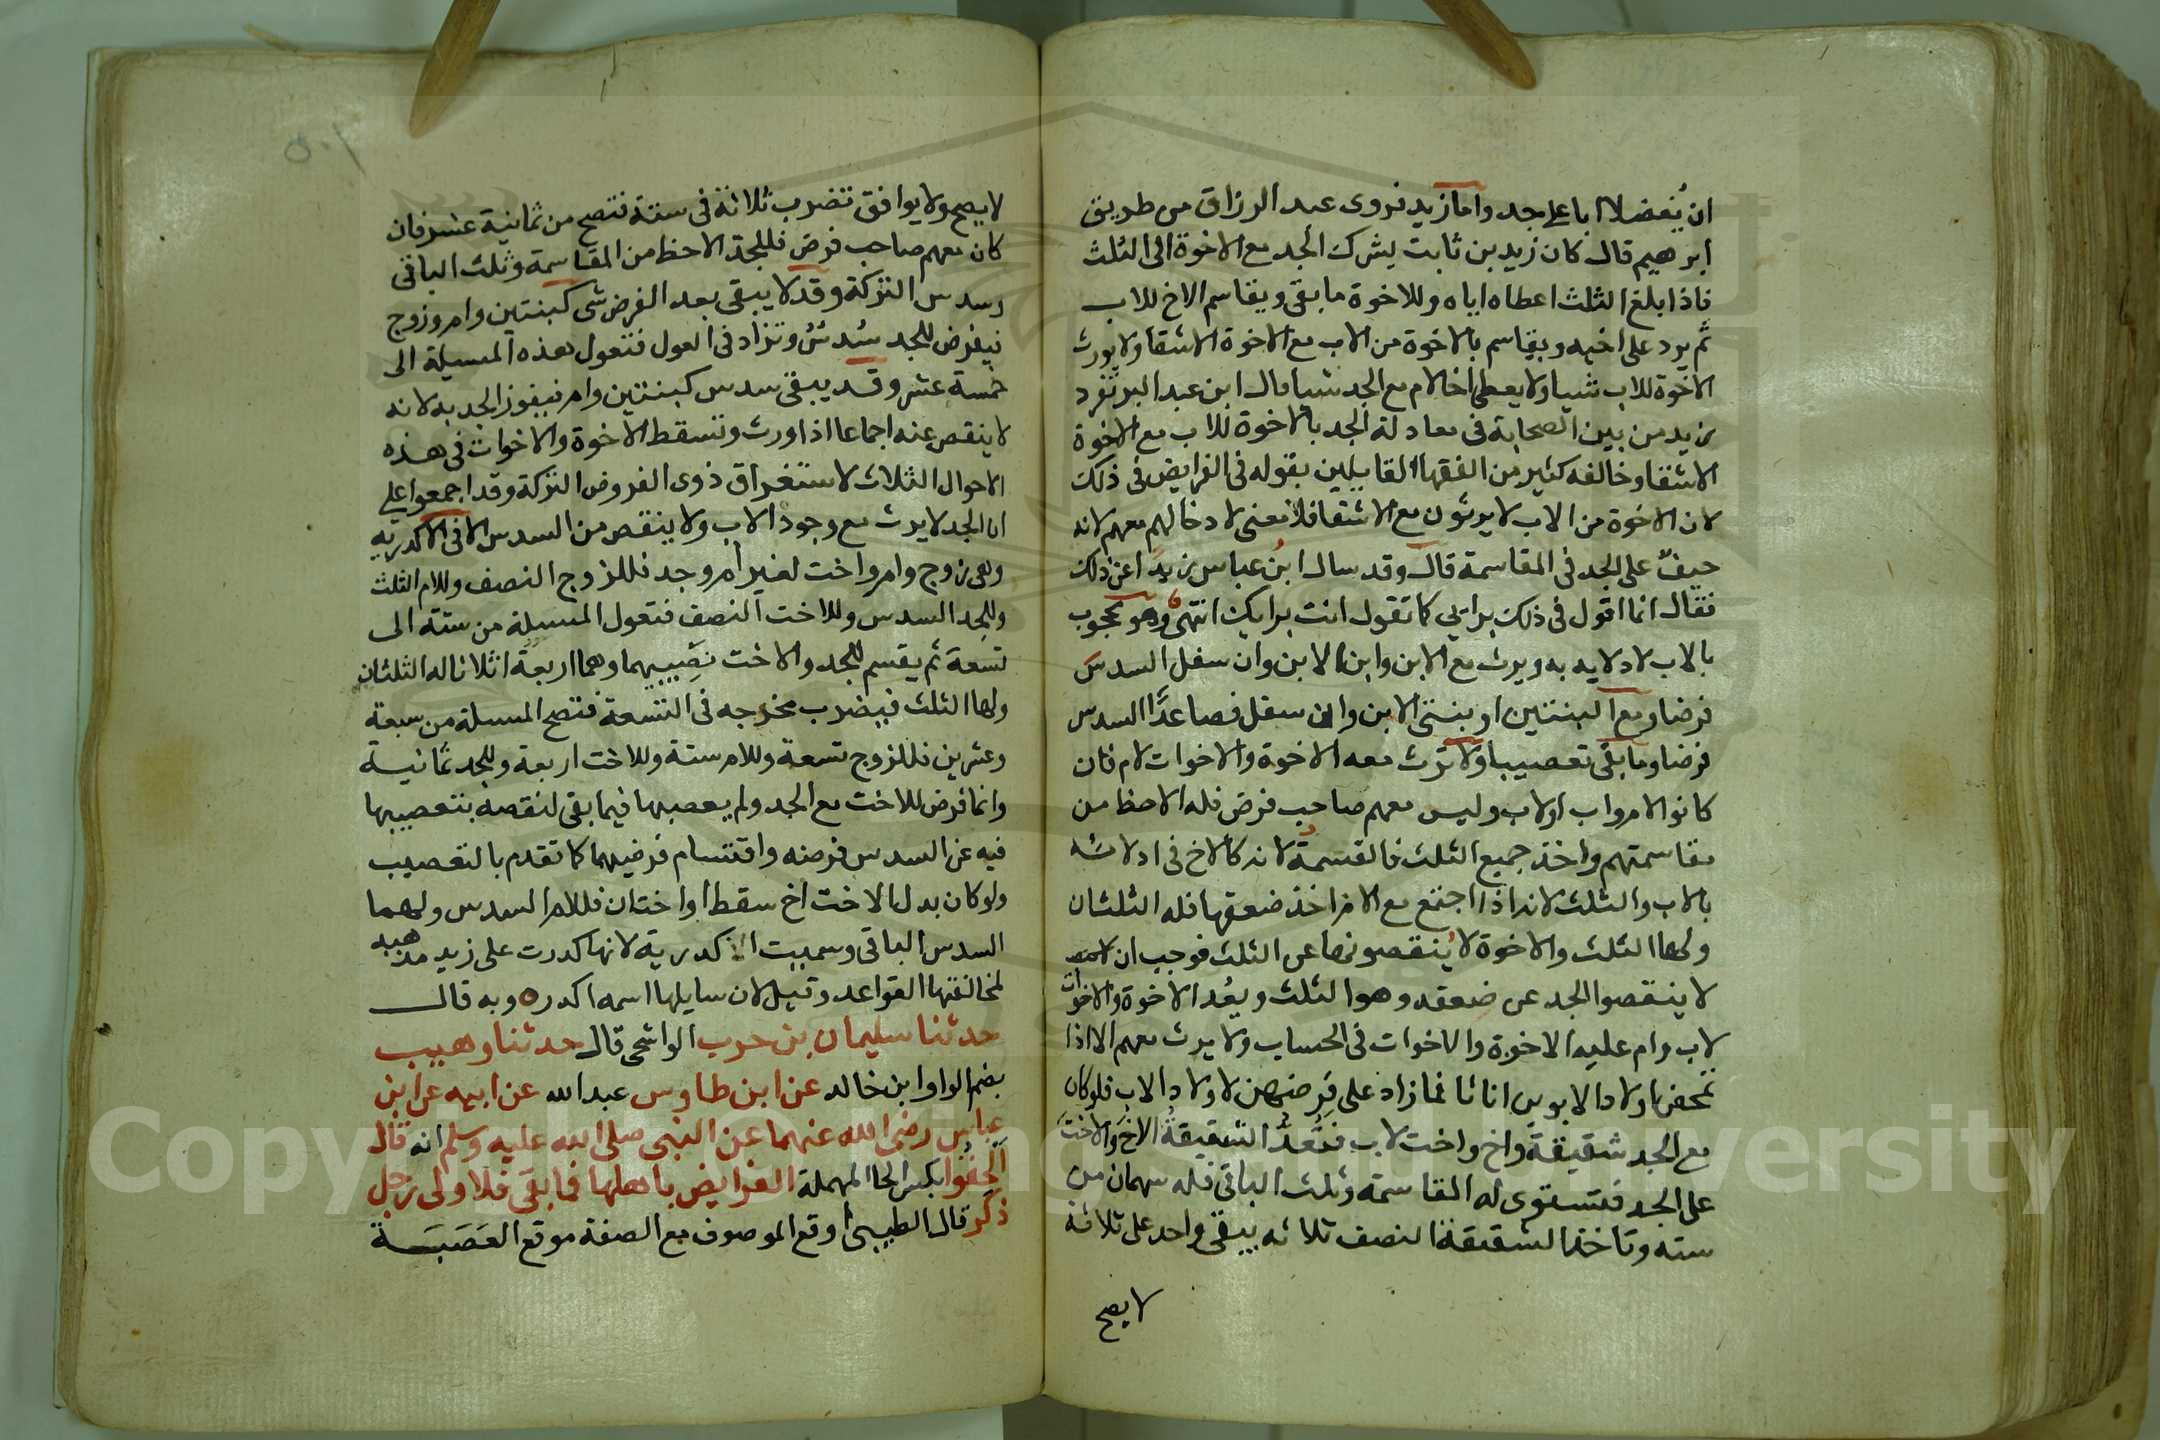 ان يُفضلا ابا على جد واما زيد فروى عبد الرزاق من طريق
ابرهيم قال كان زيد بن ثابت يشرك الجد مع الاخوة الى الثلث
فاذا بلغ الثلث اعطاه اياه وللاخوة ما بقى ويقاسم الاخ للاب
ثم يرد على اخيه ويقاسم بالاخوة من الاب مع الاخوة الاشقا ولا يورث
الاخوة للاب شيا ولا يعطى اخا لام مع الجد شيا قال ابن عبد البر تفرد
زيد من بين الصحابة فى معادلة الجد بالاخوة للاب مع الاخوة
الاشقا وخالفه كثير من الفقها القايلين بقوله فى الفرايض فى ذلك
لان الاخوة من الاب لا يرثون مع الاشقا فلا معنى لادخالهم معهم لانه
حيفٌ على الجد فى المقاسمة قال وقد سال ابنُ عباس زيدًا عن ذلك
فقال انما اقول فى ذلك براءيى كما تقول انت برايك انتهى وهو محجوب
بالاب لادلايه به ويرث مع الابن وابن الابن وان سفل السدس
فرضا ومع البنتين او بنتى الابن وان سفل فصاعدًا السدس
فرضا وما بقى تعصيبا ولا ترث معه الاخوة والاخوات لام فان
كانوا لام واب او لاب وليس معهم صاحب فرض فله الاحظ من
مقاسمتهم واخذ جميع الثلث فالقسمةُ لانه كالاخ فى ادلائه
بالاب والثلث لانه اذا اجتمع مع الام اخذ ضعفها فله الثلثان
ولها الثلث والاخوة لا يُنقصونها عن الثلث فوجب ان
لا ينقصوا الجد عن ضعفه وهو الثلث ويعُد الاخوة والاخوات
لاب وام عليه الاخوة والاخوات فى الحساب ولا يرث معهم الا اذا
تمحض اولاد الابوين اناثا فما زاد على فرضهن لاولاد الاب فلو كان
مع الجد شقيقة واخ واخت لاب فتُعدُّ الشقيقةُ الاخَ والاختَ
على الجد فتستوى له المقاسمة وثلث الباقى فله سهمان من
ستة وتاخذ الشقيقة النصف ثلاثه يبقى واحد على ثلاثة
لا يصح
لا يصح ولا يوافق تضرب ثلاثة فى ستة فتصح من ثمانية عشر فان
كان معهم صاحب فرض فللجد الاحظ من المقاسمة وثلث الباقى
وسدس التركة وقد لا يبقى بعد الفرض شى كبنتين وام وزوج
فيفرض للجد سُدسٌ وتزاد فى العول فتعول هذه المسيلة الى
خمسة عشر وقد يبقى سدس كبنتين وام فيفوز الجد به لانه
لا ينقص عنه اجماعا اذا ورث وتسقط الاخوة والاخوات فى هذه
الاحوال الثلاث لاستغراق ذوى الفروض التركة وقد اجمعوا على
ان الجد لا يرث مع وجود الاب ولا ينقص من السدس الا فى الاكدرية
وهى زوج وام واخت لغير أم وجد فللزوج النصف وللام الثلث
وللجد السدس وللاخت النصف فتعول المسيلة من ستة الى
تسعة ثم يقسم الجد والاخت نصيبيهما وهما اربعة اثلاثا له الثلثان
ولها الثلث فيضرب مخرجه فى التسعة فتصح المسيلة من سبعة
وعشرين فللزوج تسعة وللام ستة وللاخت اربعة وللجد ثمانية
وانما فرض للاخت مع الجد ولم يعصبها فيما بقى لنقصه بتعصيبها
فيه عن السدس فرضه واقتسام فرضيهما كما تقدم بالتعصيب
ولو كان بدل الاخت اخ سقط او اختان فللام السدس ولهما
السدس الباقى وسميت الاكدرية لانها كدرت على زيد مذهبه
لمخالفتها القواعد وقيل لان سايلها اسمه اكدر وبه قال
حدثنا سليمان بن حرب الواشحى قال حدثنا وهيب
بضم الواو ابن خالد عن ابن طاوس عبد الله عن ابيه عن ابن
عباس رضى الله عنهما عن النبى صلى الله عليه وسلم انه قال
الحِقُوا بكسر الحا المهملة الفرايض باهلها فما بقى فلاولى رجل
ذكر قال الطيبى أوقع الموصوف مع الصفة موقع العَصَبَة